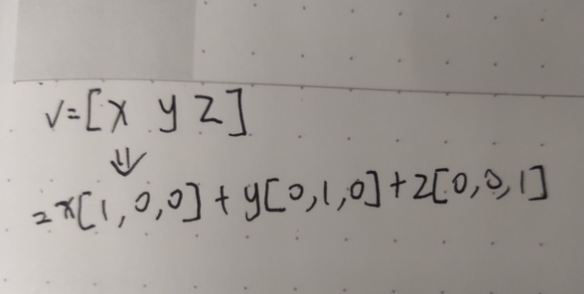 v=[x y z]
⇓
=x[1,0,0]+y[0,1,0]+z[0,0,1]